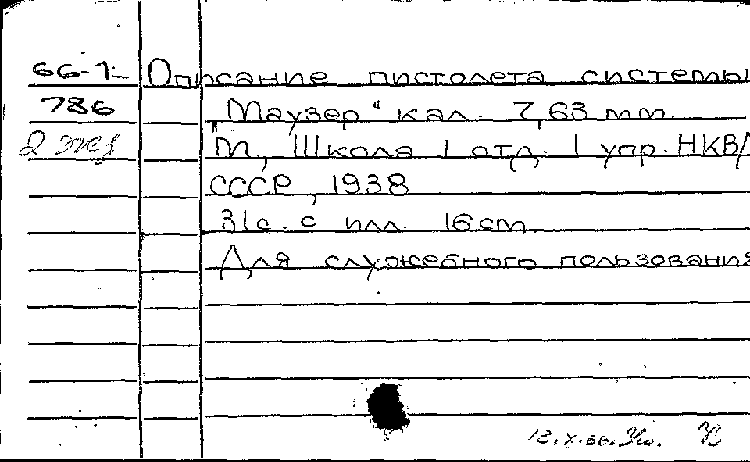 66-7- Описание пистолета системы
786 „Маузер“ кал. 7,63 mm.
2 экз М, Школа 1 отд. 1 упр. НКВД
СССР, 1938
31с. с илл. 16 cm.
Для служебного пользования
12.X.66.